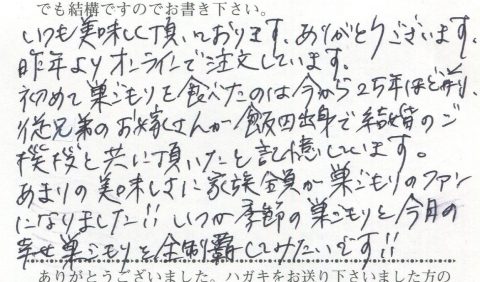 でも結構ですのでお書き下さい。
いつも美味しく頂いております。ありがとうございます。
昨年よりオンラインで注文しています。
初めて巣ごもりを食べたのは今から25年ほど前、
従兄弟のお嫁さんが飯田出身で結婚のご
挨拶と共に頂いたと記憶しています。
あまりの美味しさに家族全員が巣ごもりのファン
になりました!! いつか季節の巣ごもりと今月の
幸せ巣ごもりを全制覇してみたいです!!
ありがとうございました。ハガキをお送り下さいました方の